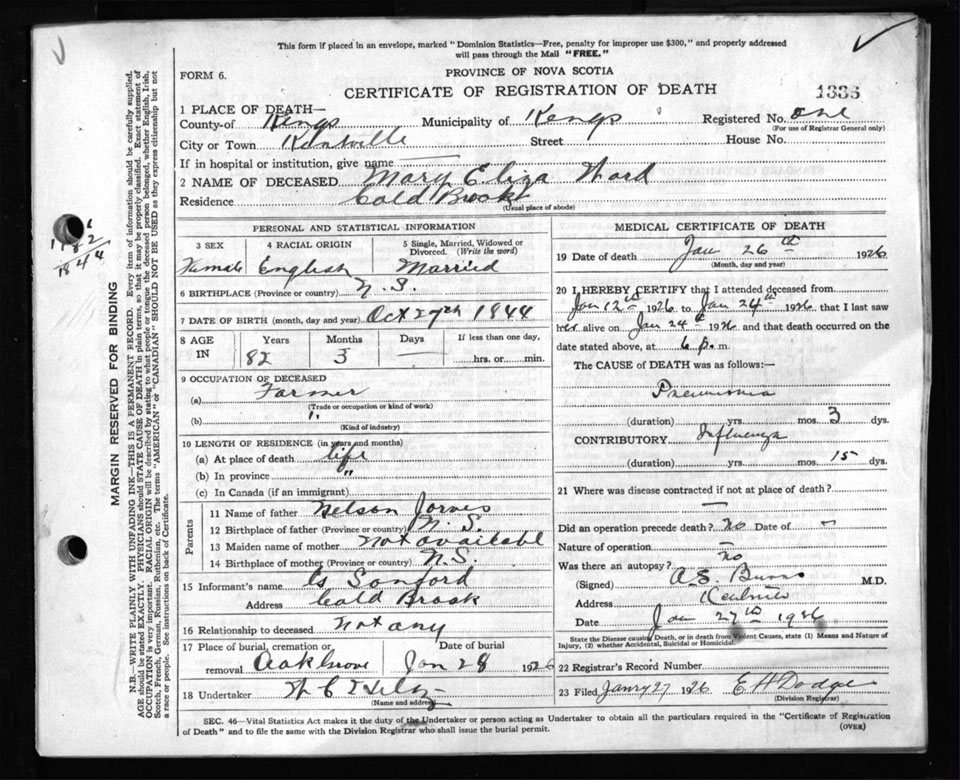 This form if placed in an envelope, marked "Dominion Statistics—Free, penalty for improper use $300," and properly addressed
will pass through the Mail "FREE."
FORM 6.
PROVINCE OF NOVA SCOTIA
CERTIFICATE OF REGISTRATION OF DEATH
1336
1 PLACE OF DEATH—
County of Kings Municipality of Kings Registered No. one
(For use of Registrar General only)
City or Town Kentville Street House No.
If in hospital or institution, give name —
2 NAME OF DECEASED Mary Eliza Ward
Residence Cold Brook
(Usual place of abode)
PERSONAL AND STATISTICAL INFORMATION
3 SEX 4 RACIAL ORIGIN 5 Single, Married, Widowed or Divorced. (Write the word)
Female English Married
6 BIRTHPLACE (Province or country) N.S.
7 DATE OF BIRTH (month, day and year) Oct 27th 1844
8 AGE IN Years Months Days If less than one day,
82 3 — hrs. or min.
9 OCCUPATION OF DECEASED
(a) Farmer
(Trade or occupation or kind of work)
(b) "
(Kind of industry)
10 LENGTH OF RESIDENCE (in years and months)
(a) At place of death life
(b) In province "
(c) In Canada (if an immigrant)
Parents
11 Name of father Nelson
12 Birthplace of father (Province or country) N.S.
13 Maiden name of mother not available
14 Birthplace of mother (Province or country) N.S.
15 Informant's name Sanford
Address Cold Brook
16 Relationship to deceased not any
17 Place of burial, cremation or removal Oak Grove Date of burial Jan 28 1926
18 Undertaker
(Name and address)
MEDICAL CERTIFICATE OF DEATH
19 Date of death Jan 26th 1926
(Month, day and year)
20 I HEREBY CERTIFY that I attended deceased from
Jan 12th 1926 to Jan 24th 1926 that I last saw
her alive on Jan 24th 1926 and that death occurred on the
date stated above, at 6 p. m.
The CAUSE of DEATH was as follows:—
Pneumonia
(duration) yrs. mos. 3 dys.
CONTRIBUTORY Influenza
(duration) yrs. mos. 15 dys.
21 Where was disease contracted if not at place of death?
—
Did an operation precede death? no Date of —
Nature of operation —
Was there an autopsy? no
(Signed) A.S. Burns M.D.
Address Kentville
Date Jan 27th 1926
State the Disease causing Death, or in death from Violent Causes, state (1) Means and Nature of
Injury, (2) whether Accidental, Suicidal or Homicidal.
22 Registrar's Record Number
23 Filed Janry 27 1926 E H Dodge
(Division Registrar)
SEC. 46—Vital Statistics Act makes it the duty of the Undertaker or person acting as Undertaker to obtain all the particulars required in the "Certificate of Registration
of Death" and to file the same with the Division Registrar who shall issue the burial permit.
(OVER)
MARGIN RESERVED FOR BINDING
N.B.—WRITE PLAINLY WITH UNFADING INK—THIS IS A PERMANENT RECORD. Every item of information should be carefully supplied.
AGE should be stated EXACTLY. PHYSICIANS should STATE CAUSE OF DEATH in plain terms, so that it may be properly classified. Exact statement of
OCCUPATION is very important. RACIAL ORIGIN will be described by stating to what people or tongue the deceased person belonged, whether English, Irish,
Scotch, French, German, Russian, Ruthenian, etc. The terms "AMERICAN" or "CANADIAN" SHOULD NOT BE USED as they express citizenship but not
a race or people. See instructions on back of Certificate.
82
1844